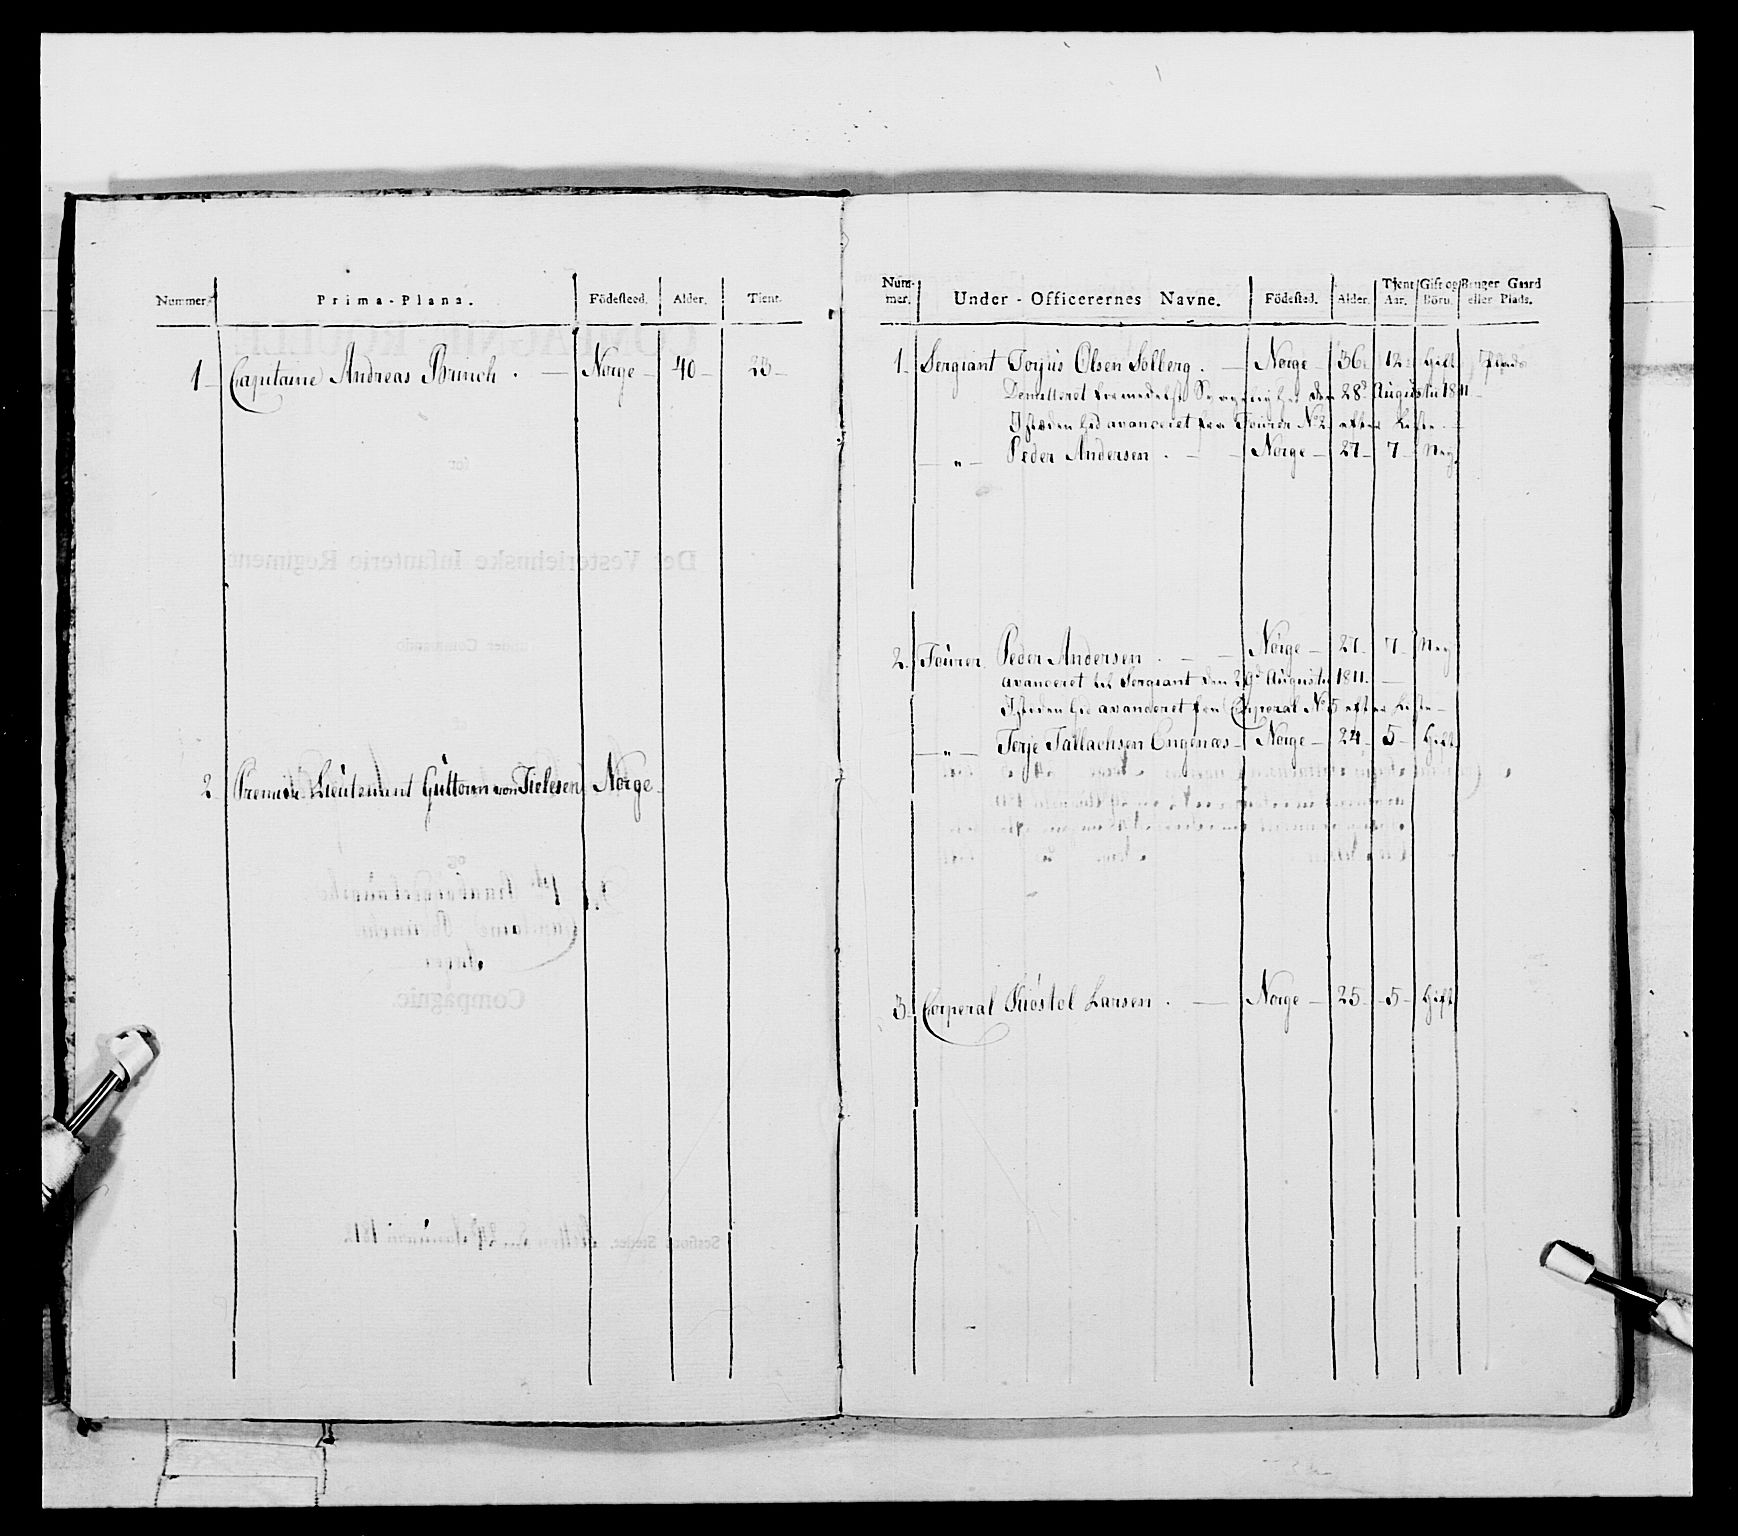 Nummer. Prima-Plana. Födesteed. Alder. Tient.
1 Capitaine Andreas Brinch . — Norge — 40 — 23 —
2. Premier Lieutenant Guttorm von Tielesen Norge.
Num-mer. Under-Officerernes Navne. Födested. Alder. Tient Aar. Gift og Börn. Bruger Gaard eller Plads.
1. Sergiant Torjus Olsen Solberg . — Norge 36. 12 Gift Plads
Demitteret formedelst Svagelighed den 28d Augusti 1811.
Isteden hid avanceret fra Fourer No 2. efter Liste. —
— " — Peder Andersen . — — Norge — 27 — 7 — Neÿ.
2. Fourer Peder Andersen . — — Norge — 27. 7. Neÿ
avanceret til Sergiant den 29d Augusti 1811. —
Isteden hid avanceret fra Corperal No 5 efter Liste —
— " — Terje Tallachsen Engenæs — Norge — 24 — 5 — Gift
3. Corperal Kiöstel Larsen . — Norge — 25 — 5 — Gift